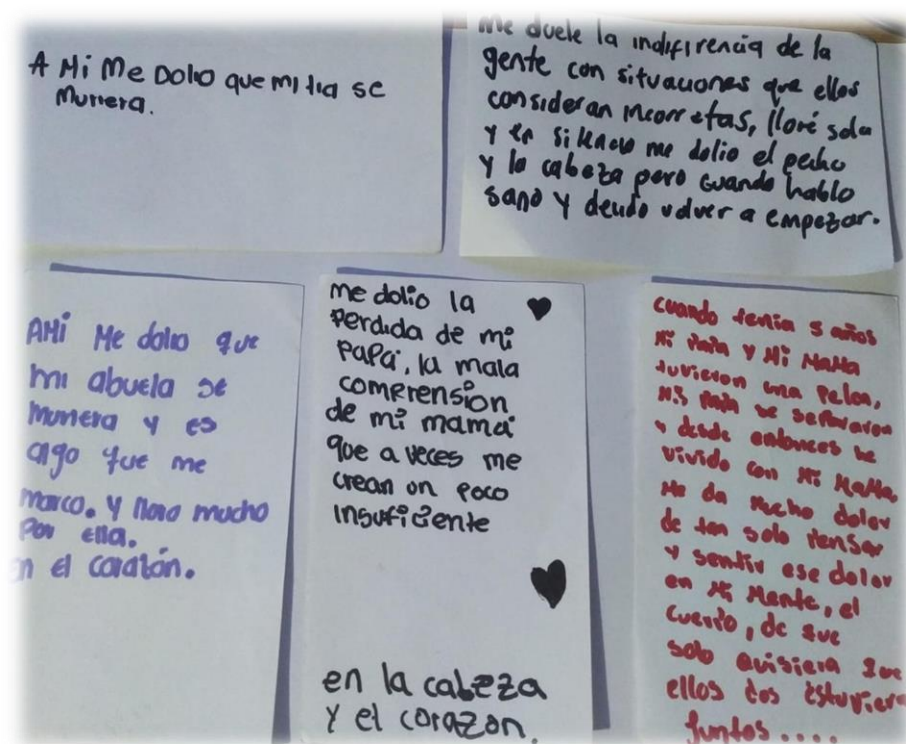 A Mi Me Dolio que mi tia se
Muriera.
Me duele la indifirencia de la
gente con situaciones que ellos
consideran incorretas, lloré sola
y en silencio me dolio el pecho
y la cabeza pero cuando hablo
sano y deudo volver a empezar.
AMi Me dolio que
mi abuela se
muriera y es
algo que me
marco. y lloro mucho
Por ella.
en el corazón.
me dolio la
Perdida de mi
Papá, la mala
comprension
de mi mamá
que a veces me
crean un poco
insuficiente
en la cabeza
y el corazon.
cuando tenia 5 años
Mi Papa y Mi Mama
tuvieron una Pelea,
Mis Papa se separaron
y desde entonces he
vivido con Mi Mama
Me da Mucho dolor
de tan solo Pensar
y sentir ese dolor
en Mi Mente, el
Cuerpo, de que
solo quisiera que
ellos dos estuviera
Juntos....